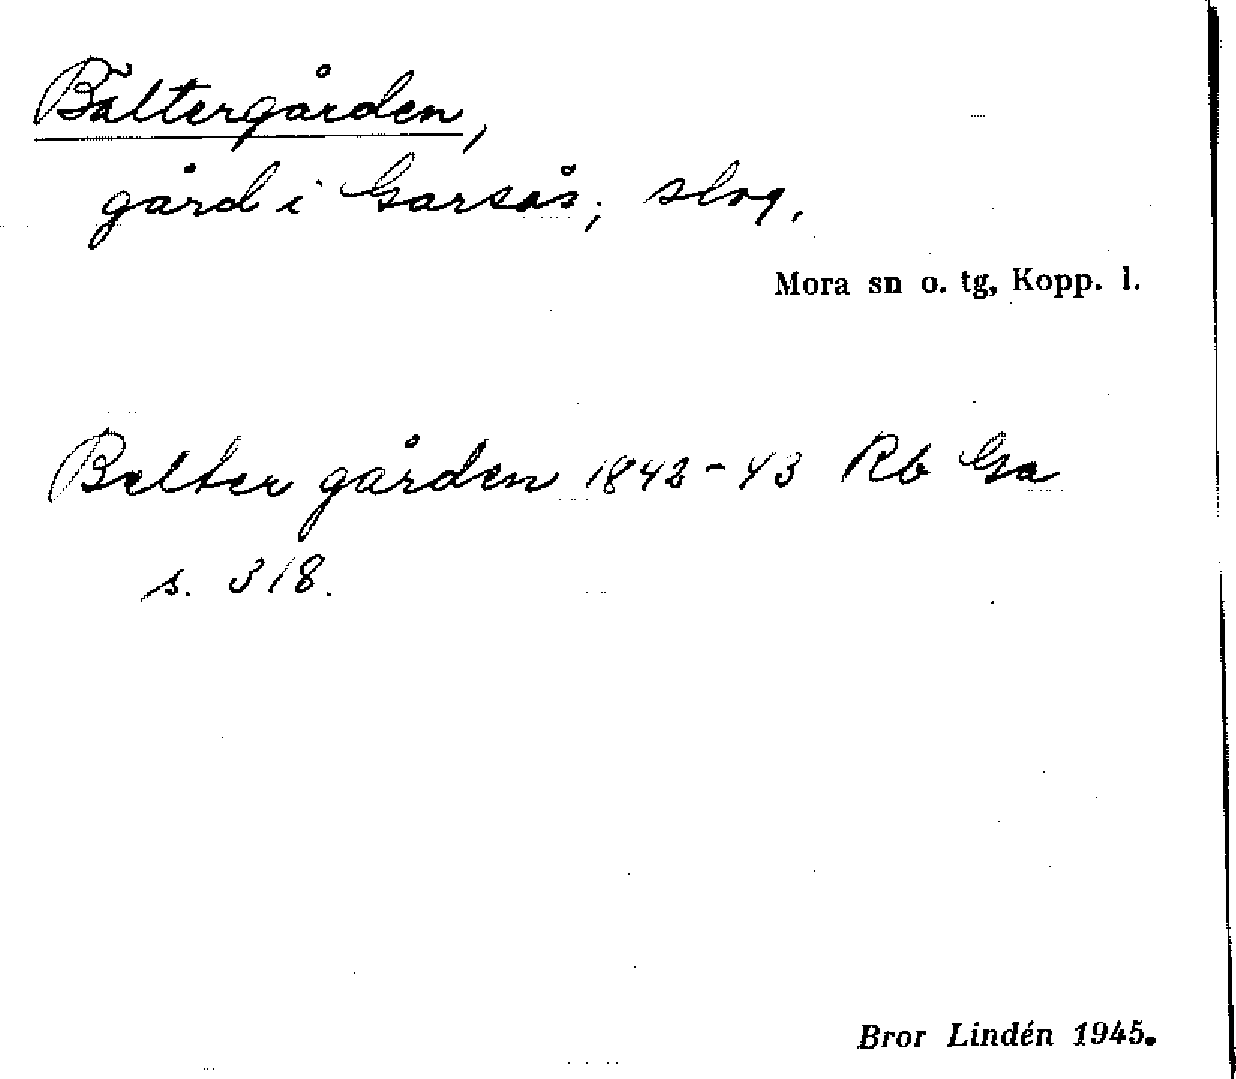 Bältergården,
gård i Garsås; slog.
Mora sn o. tg, Kopp. l.
Belter gården 1842-43 Rb Ga
s. 318.
Bror Lindén 1945.